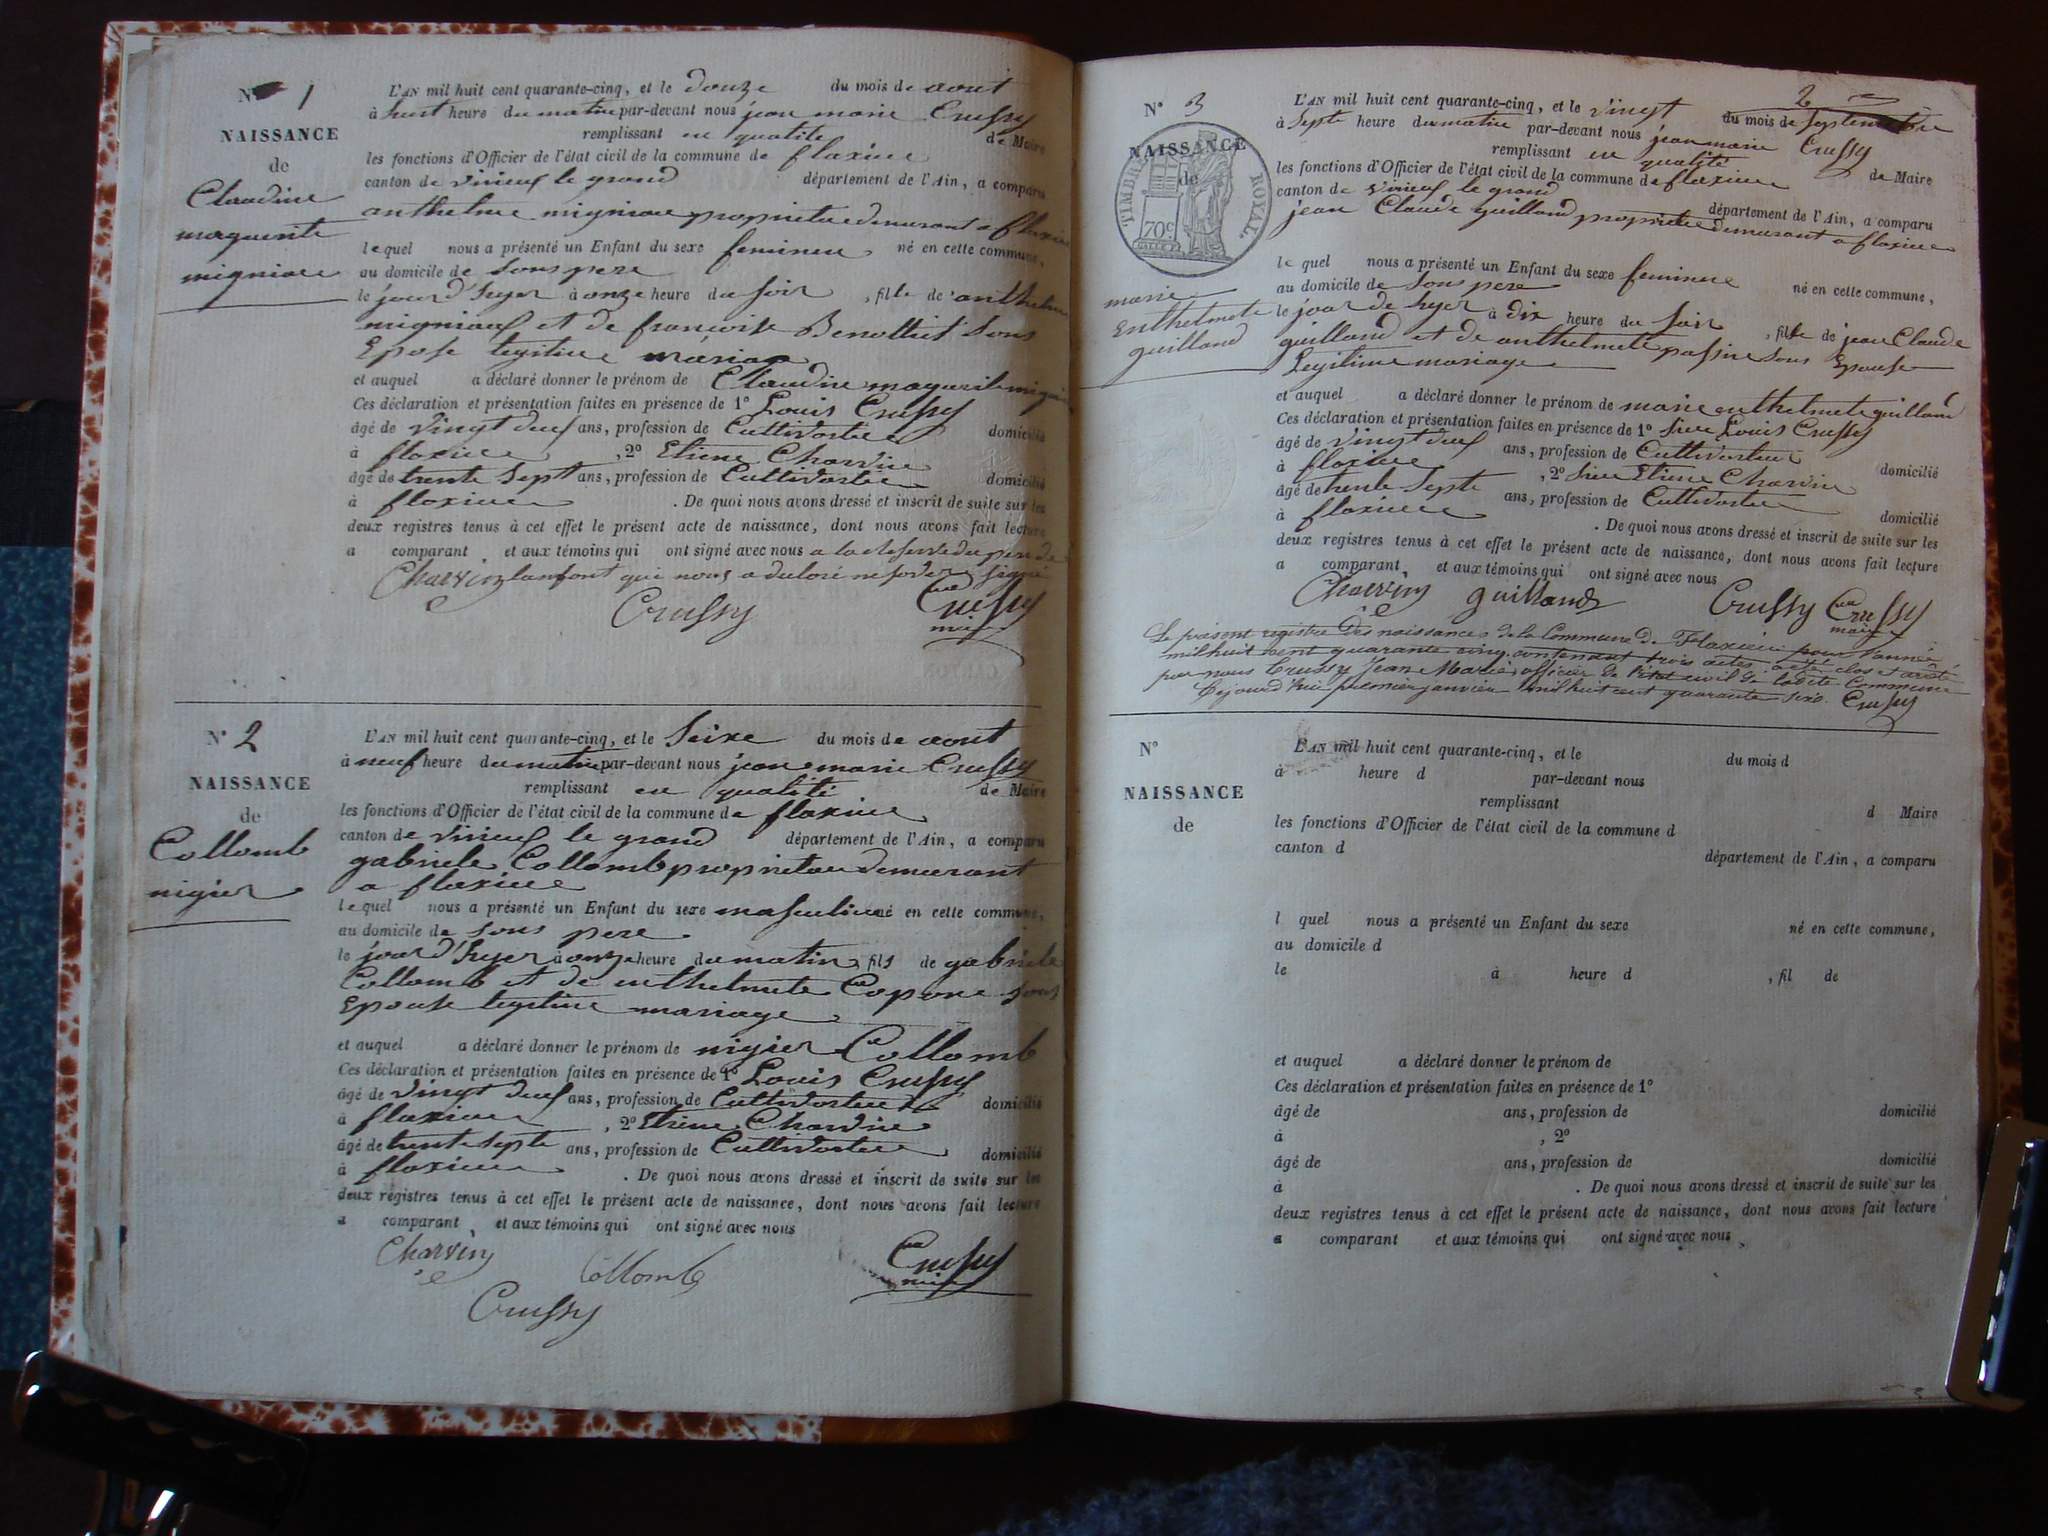 N° 1
NAISSANCE
de
Claudine
marguerite
migniau
L'AN mil huit cent quarante-cinq, et le douze du mois de aout
à huit heure du matin par-devant nous jean marie Crussy
remplissant en qualité de Maire
les fonctions d'Officier de l'état civil de la commune de flaxieu
canton de virieux le grand département de l'Ain, a comparu
anthelme migniau proprietere demurant a flaxieu
lequel nous a présenté un Enfant du sexe feminin né en cette commune,
au domicile de sons pere
le jour d'hyer à onze heure du soir, fille de anthelme
migniaux et de francoise Benottit sons
Epose legitime mariage
et auquel a déclaré donner le prénom de Claudine magurite migniau
Ces déclaration et présentation faites en présence de 1° Louis Crussy
âgé de vingt deux ans, profession de Cultivateur domicilié
à flaxieu, 2° Etiene Charvin
âgé de trente sept ans, profession de Cultivateur domicilié
à flaxieu. De quoi nous avons dressé et inscrit de suite sur les
deux registres tenus à cet effet le présent acte de naissance, dont nous avons fait lecture
a comparant et aux témoins qui ont signé avec nous a la reserve du pere de
Charvin lanfont qui nous a declaré signé
Crussy Crussy
maire
N° 2
NAISSANCE
de
Collomb
nigier
L'AN mil huit cent quarante-cinq, et le Seixe du mois de aout
à neuf heure du matin par-devant nous jean marie Crussy
remplissant en qualité de Maire
les fonctions d'Officier de l'état civil de la commune de flaxieu
canton de virieux le grand département de l'Ain, a comparu
gabriele Collomb proprietare demurant
a flaxieu
lequel nous a présenté un Enfant du sexe masculin né en cette commune,
au domicile de sons pere
le jour d'hyer à onze heure du matin, fils de gabriele
Collomb et de enthelmete Copone sons
Epouse legitime mariage
et auquel a déclaré donner le prénom de nigier Collomb
Ces déclaration et présentation faites en présence de 1° Louis Crussy
âgé de vingt deux ans, profession de Cultivateur domicilié
à flaxieu, 2° Etiene Charvin
âgé de trente septe ans, profession de Cultivateur domicilié
à flaxieu. De quoi nous avons dressé et inscrit de suite sur les
deux registres tenus à cet effet le présent acte de naissance, dont nous avons fait lecture
a comparant et aux témoins qui ont signé avec nous
Charvin Collomb Crussy
maire
Crussy
2
N° 3
NAISSANCE
de
TIMBRE ROYAL.
70c
marie
Enthelmete
guilland
L'AN mil huit cent quarante-cinq, et le vingt du mois de septembre
à septe heure du matin par-devant nous jean marie Crussy
remplissant en qualité de Maire
les fonctions d'Officier de l'état civil de la commune de flaxieu
canton de virieux le grand département de l'Ain, a comparu
jean Claude guilland proprietere demurant a flaxieu
lequel nous a présenté un Enfant du sexe feminin né en cette commune,
au domicile de sons pere
le jour de hyer à dix heure du soir, fille de jean Claude
guilland et de anthelmete passin sons Epouse
Legitime mariage
et auquel a déclaré donner le prénom de marie enthelmete guilland
Ces déclaration et présentation faites en présence de 1° sieur Louis Crussy
âgé de vingt deux ans, profession de Cultivateur domicilié
à flaxieu, 2° sieur Etiene Charvin
âgé de trente septe ans, profession de Cultivateur domicilié
à flaxieu. De quoi nous avons dressé et inscrit de suite sur les
deux registres tenus à cet effet le présent acte de naissance, dont nous avons fait lecture
a comparant et aux témoins qui ont signé avec nous
Charvin guilland Crussy Crussy
maire
Le présent registre des naissances de la Commune de Flaxieu pour l'année
mil huit cent quarante cinq contenant trois actes a été clos et arrêté
par nous Crussy Jean Marie officier de l'état civil de ladite Commune
Cejourd'hui premier janvier mil huit cent quarante six. Crussy
N°
NAISSANCE
de
L'AN mil huit cent quarante-cinq, et le du mois d
à heure d par-devant nous
remplissant d Maire
les fonctions d'Officier de l'état civil de la commune d
canton d département de l'Ain, a comparu
l quel nous a présenté un Enfant du sexe né en cette commune,
au domicile d
le à heure d , fil de
et auquel a déclaré donner le prénom de
Ces déclaration et présentation faites en présence de 1°
âgé de ans, profession de domicilié
à , 2°
âgé de ans, profession de domicilié
à . De quoi nous avons dressé et inscrit de suite sur les
deux registres tenus à cet effet le présent acte de naissance, dont nous avons fait lecture
a comparant et aux témoins qui ont signé avec nous